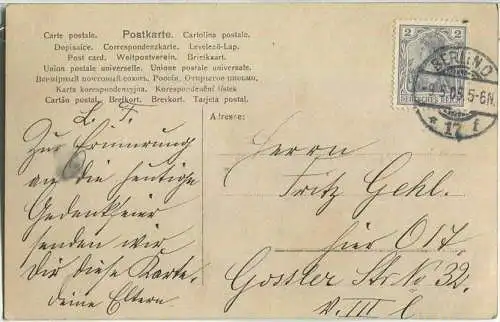 Carte postale. Postkarte. Cartolina postale.
Dopisnice. Correspondenzkarte. Levelező-Lap.
Post card. Weltpostverein. Briefkaart.
Union postale universelle. Unione postale universale.
Всемірный почтовый союзъ. Россія. Открытое письмо.
Karta korespondencyjna. Korespondenční lístek
Cartão postal. Brefkort. Brevkort. Tarjeta postal.
L. F.
Zur Erinnerung
an die heutige
Gedenkfeier
senden wir
Dir diese Karte.
Deine Eltern.
Adresse:
Herrn
Fritz Gehl.
hier O 17.
Gossler Str No 32.
v. III l
2 2
DEUTSCHES REICH
BERLIN O
5-6N
* 17 f